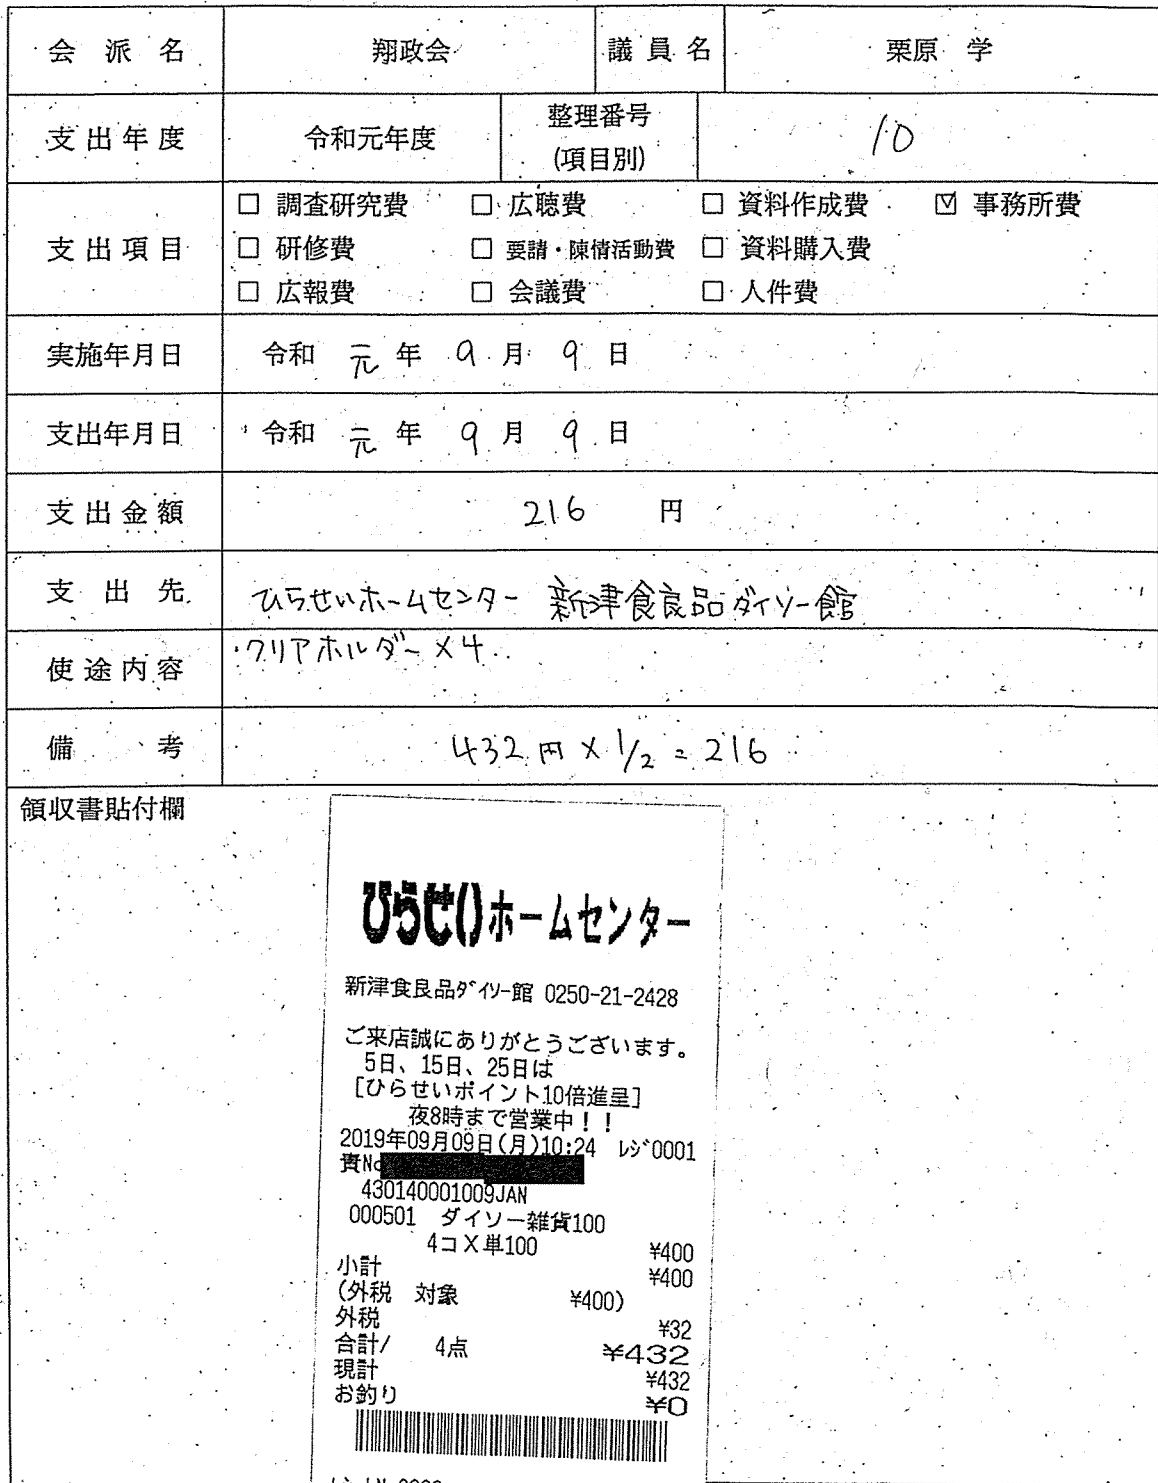 会派名 翔政会 議員名 栗原 学
支出年度 令和元年度 整理番号(項目別) 10
支出項目
☐ 調査研究費 ☐ 広聴費 ☐ 資料作成費 ☑ 事務所費
☐ 研修費 ☐ 要請・陳情活動費 ☐ 資料購入費
☐ 広報費 ☐ 会議費 ☐ 人件費
実施年月日 令和 元 年 9 月 9 日
支出年月日 令和 元 年 9 月 9 日
支出金額 216 円
支出先 ひらせいホームセンター 新津食良品ダイソー館
使途内容 ・クリアホルダー×4
備考 432円×1/2=216
領収書貼付欄
ひらせいホームセンター
新津食良品ダイソー館 0250-21-2428
ご来店誠にありがとうございます。
5日、15日、25日は
[ひらせいポイント10倍進呈]
夜8時まで営業中!!
2019年09月09日(月)10:24 レジ0001
責No
430140001009JAN
000501 ダイソー雑貨100
4コX単100 ¥400
小計 ¥400
(外税 対象 ¥400)
外税 ¥32
合計/ 4点 ¥432
現計 ¥432
お釣り ¥0